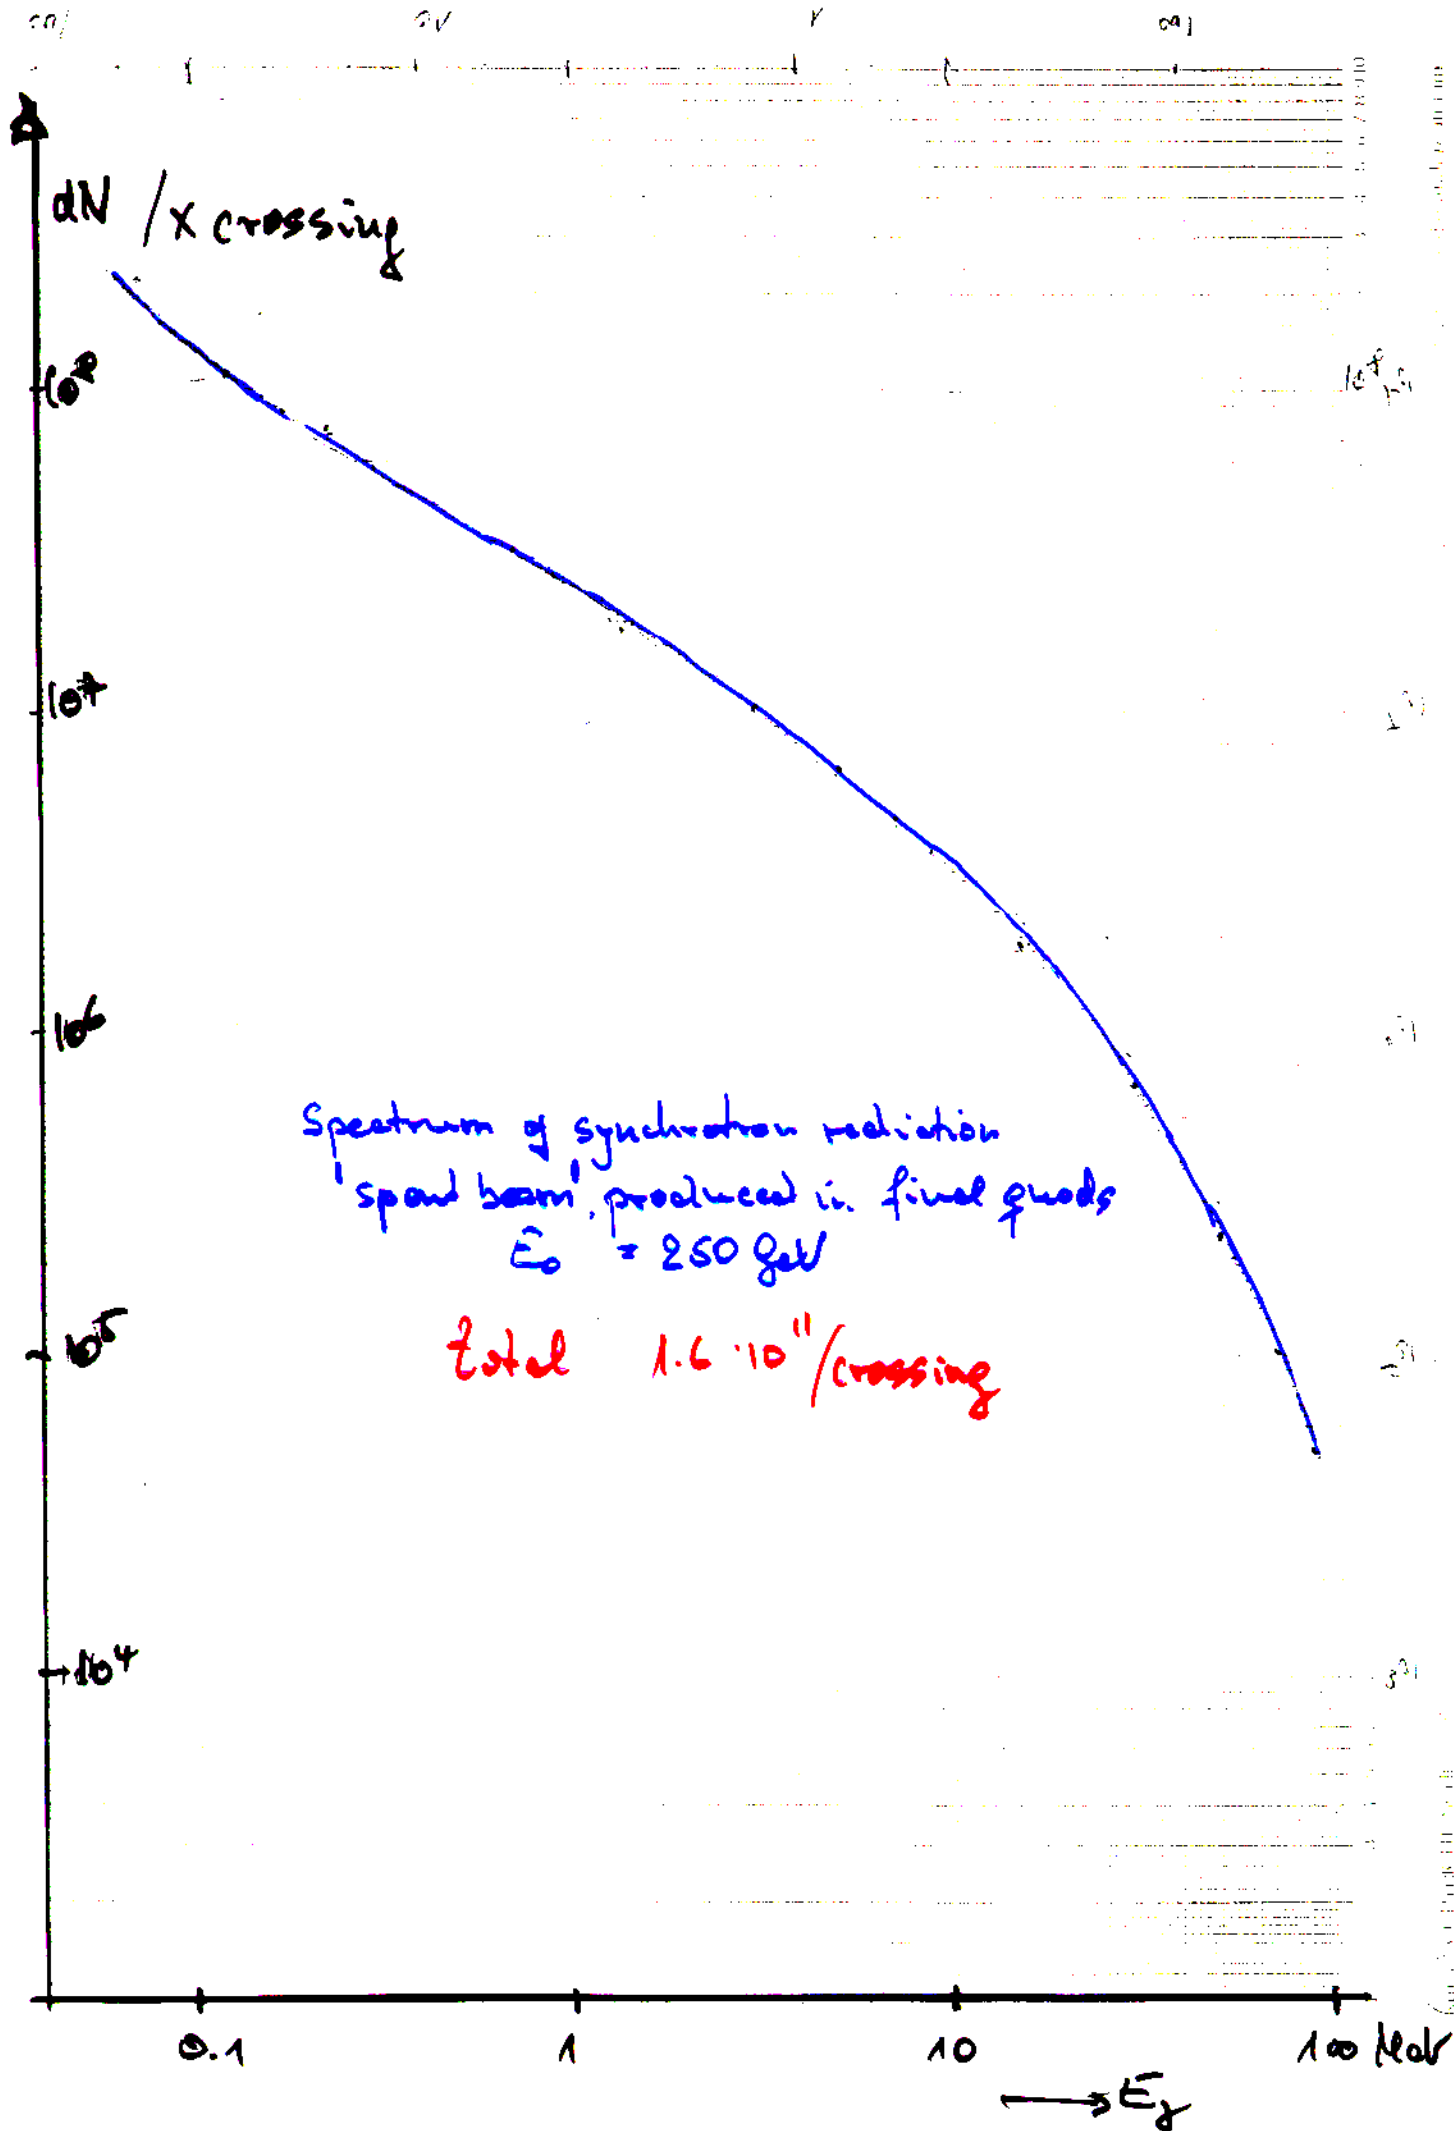 dN / X crossing
10⁸
10⁷
10⁶
10⁵
10⁴
Spectrum of synchrotron radiation
'spent beam', produced in final quads
E₀ = 250 GeV
total 1.6·10¹¹/crossing
0.1 1 10 100 MeV
→ Eγ